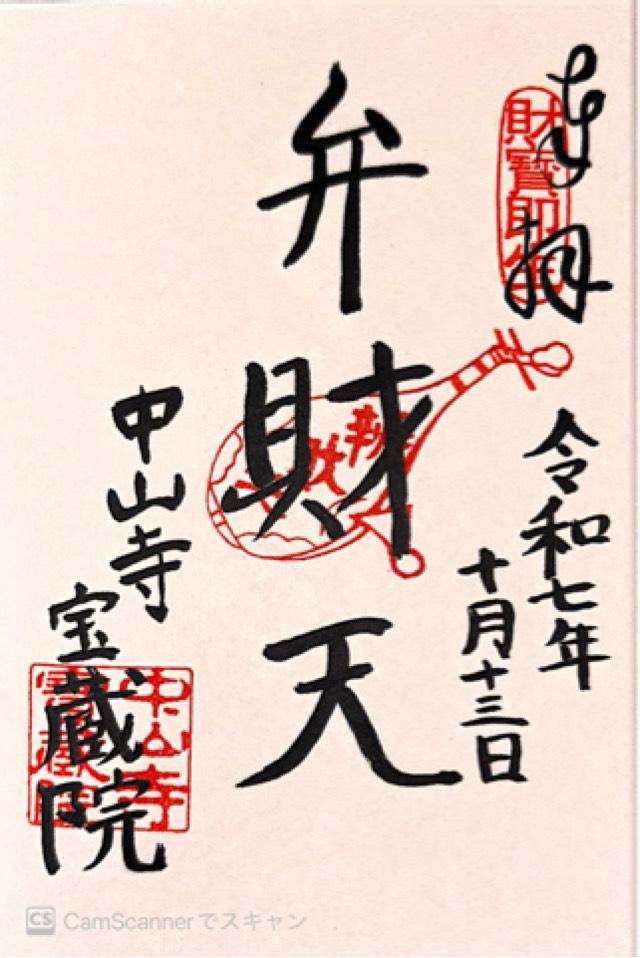 奉拝
令和七年
十月十三日
弁財天
中山寺
宝蔵院
中山寺
寳蔵院
CS CamScannerでスキャン